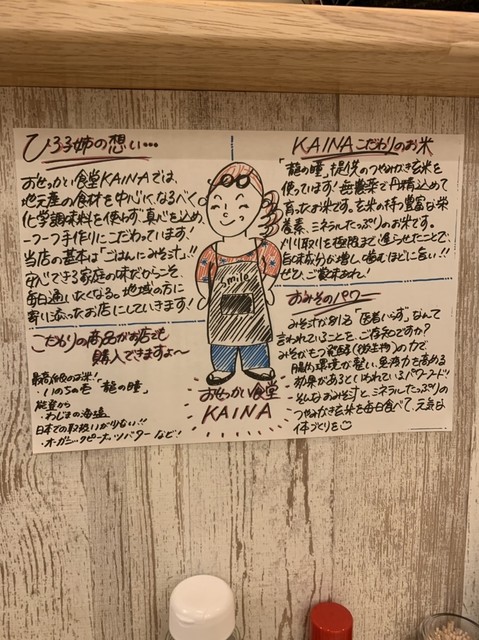 ひろ子姉の想い…
おせっかい食堂KAINAでは、
地元産の食材を中心に、なるべく
化学調味料を使わず、真心を込め
一つ一つ手作りにこだわっています!
当店の基本は「ごはんにみそ汁」!!
安心できる家庭の味だからこそ
毎日通いたくなる。地域の方に
寄り添ったお店にしていきます!
こだわりの商品がお店でも
購入できますよ〜
最高級のお米!
・いのちの壱「龍の瞳」
能登から
・わじまの海塩
日本での取扱いが少ない!!
・オーガニックピーナッツバターなど!
smile
おせっかい食堂
KAINA
KAINAこだわりのお米
「龍の瞳」提供のつやみがき玄米を
使っています!無農薬で丹精込めて
育ったお米です。玄米の持つ豊富な栄
養素、ミネラルたっぷりのお米です。
刈り取りを極限まで遅らせたことで、
旨味成分が増し、噛むほどに旨い!!
ぜひ、ご賞味あれ!
おみそのパワー
みそは別名「医者いらず」なんて
言われていることを、ご存知ですか?
みそがもつ発酵(微生物)の力で
腸内環境が整い、免疫力を高める
効果があるといわれているパワーフード!!
そんなおみそ汁と、ミネラルたっぷりの
つやみがき玄米を毎日食べて、元気な
体づくりを